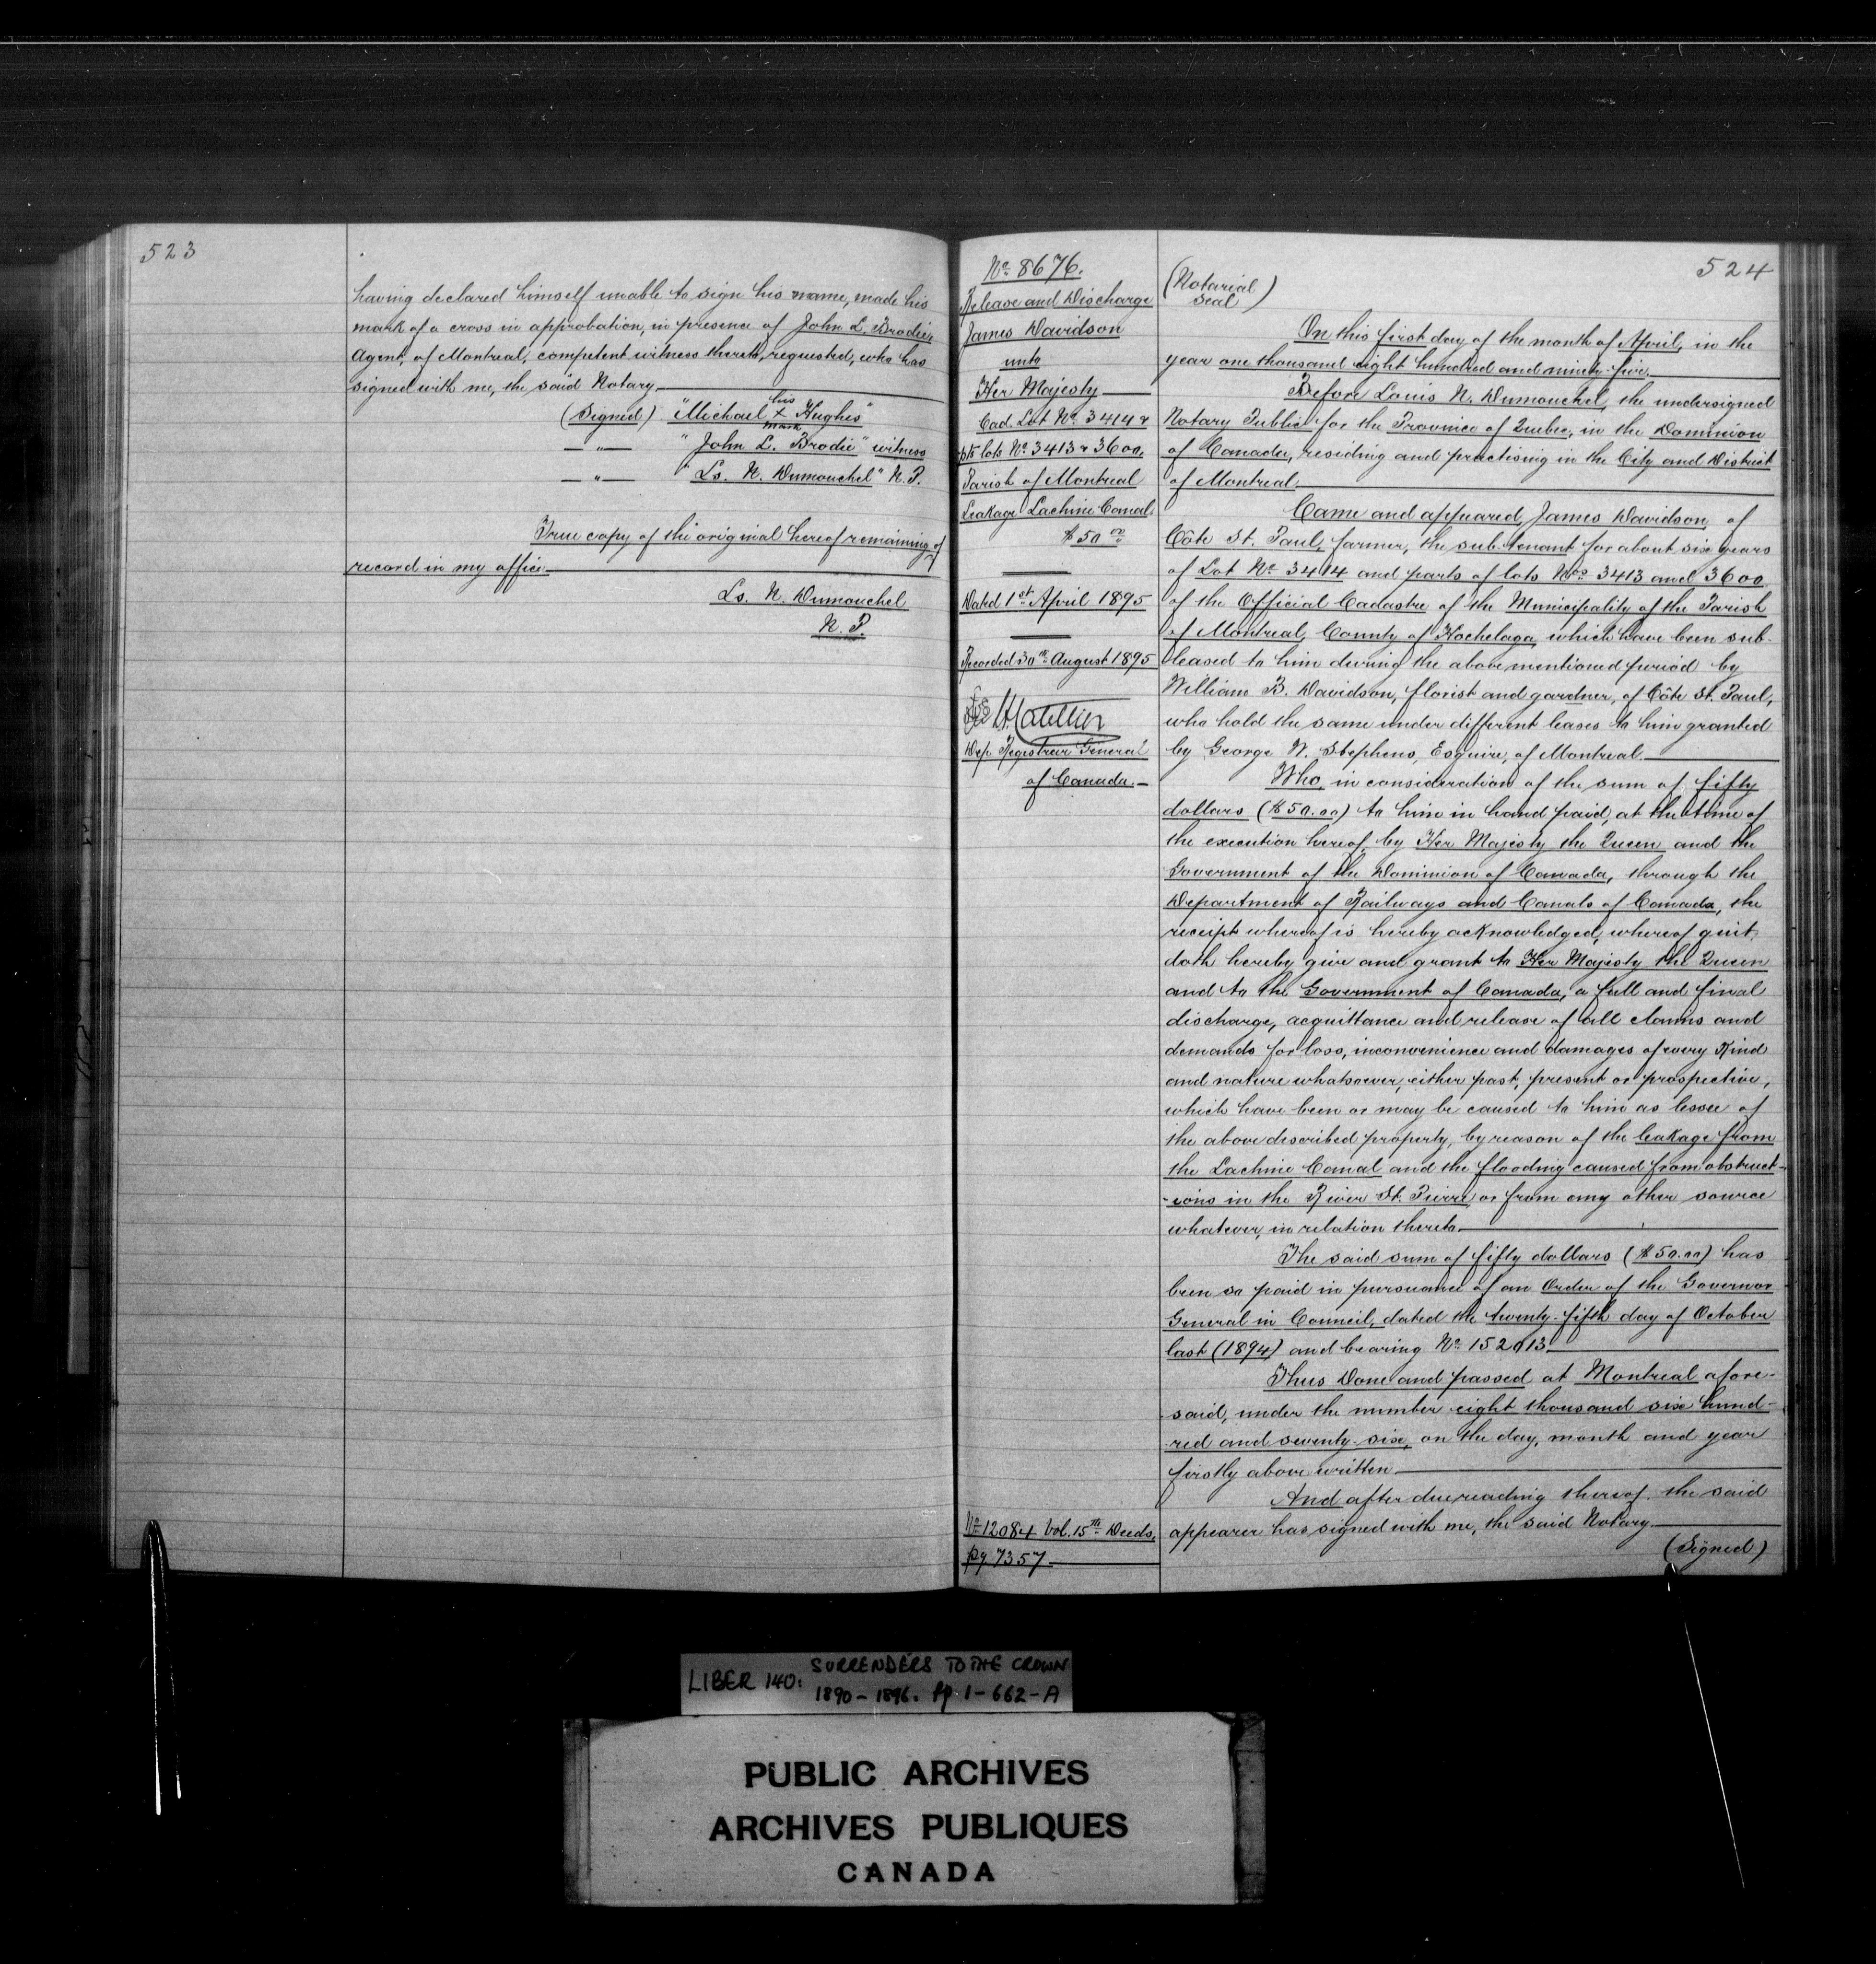 523
having declared himself unable to sign his name, made his
mark of a cross in approbation, in presence of John L. Brodie,
Agent, of Montreal, competent witness thereto, requested, who has
signed with me, the said Notary.
his
(Signed) "Michael x Hughes"
mark
— " — "John L. Brodie" witness
— " — "Ls. N. Dumouchel" N.P.
True copy of the original hereof remaining of
record in my office.
Ls. N. Dumouchel
N.P.
No. 8676.
Release and Discharge
James Davidson
unto
Her Majesty
Cad. Lot No. 3414 &
pts lots No. 3413 & 3600.
Parish of Montreal
Leakage Lachine Canal.
$50.00
Dated 1st April 1895
Recorded 30th August 1895
Dep. Registrar General
of Canada.
No. 12084 Vol. 15th Deeds,
pg 7357
524
(Notarial
Seal)
On this first day of the month of April, in the
year one thousand eight hundred and ninety-five.
Before Louis N. Dumouchel, the undersigned
Notary Public for the Province of Quebec, in the Dominion
of Canada, residing and practising in the City and District
of Montreal.
Came and appeared, James Davidson, of
Côte St. Paul, farmer, the sub-tenant for about six years
of Lot No. 3414 and parts of lots Nos 3413 and 3600
of the Official Cadastre of the Municipality of the Parish
of Montreal, County of Hochelaga, which have been sub-
leased to him during the above mentioned period by
William B. Davidson, florist and gardner, of Côte St. Paul,
who hold the same under different leases to him granted
by George W. Stephens, Esquire, of Montreal.
Who, in consideration of the sum of fifty
dollars ($50.00) to him in hand paid, at the time of
the execution hereof, by Her Majesty the Queen and the
Government of the Dominion of Canada, through the
Department of Railways and Canals of Canada, the
receipt whereof is hereby acknowledged, whereof quit,
doth hereby give and grant to Her Majesty the Queen
and to the Government of Canada, a full and final
discharge, acquittance and release of all claims and
demands for loss, inconvenience and damages of every kind
and nature whatsoever, either past, present or prospective,
which have been or may be caused to him as lessee of
the above described property, by reason of the leakage from
the Lachine Canal and the flooding caused from obstruct-
-ions in the River St. Pierre, or from any other source
whatever, in relation thereto.
The said sum of fifty dollars ($50.00) has
been so paid in pursuance of an Order of the Governor
General in Council, dated the twenty-fifth day of October
last (1894) and bearing No. 152013.
Thus Done and passed at Montreal afore-
said, under the number eight thousand six hund-
-red and seventy-six, on the day, month and year
firstly above written.
And after due reading thereof, the said
appearer has signed with me, the said Notary.
(Signed)
LIBER 140: SURRENDERS TO THE CROWN
1890-1896. pp. 1-662-A
PUBLIC ARCHIVES
ARCHIVES PUBLIQUES
CANADA